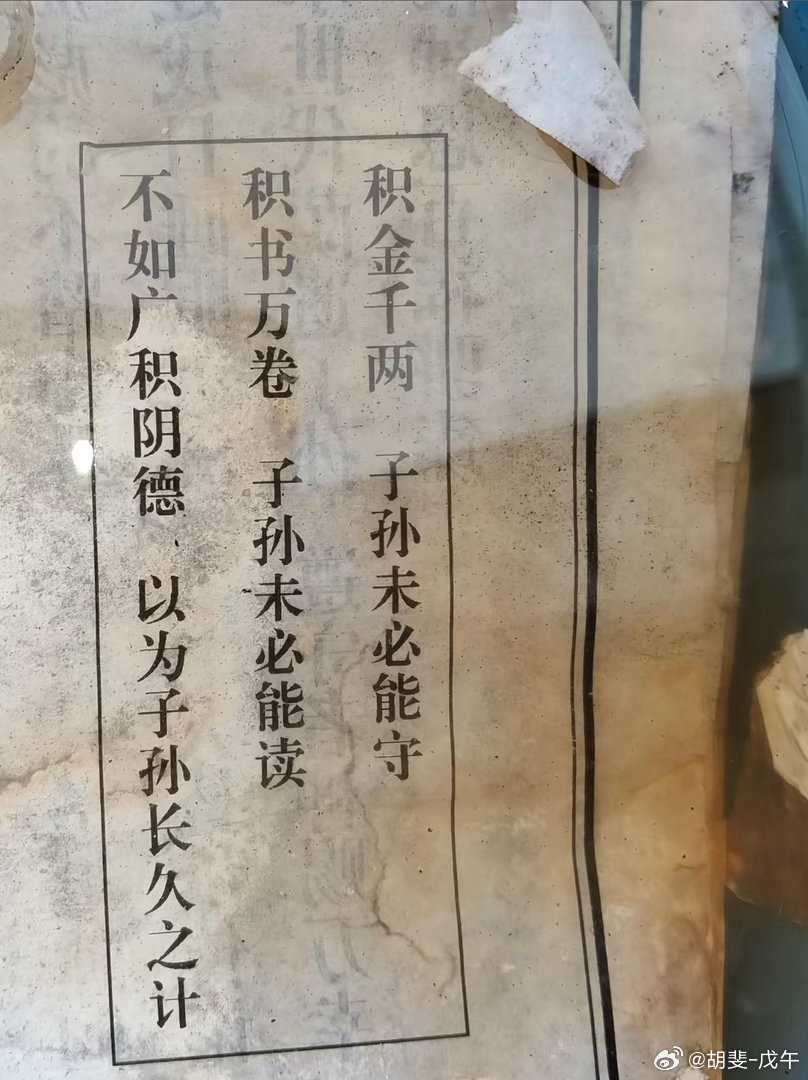 积金千两 子孙未必能守
积书万卷 子孙未必能读
不如广积阴德 以为子孙长久之计
@胡斐-戊午